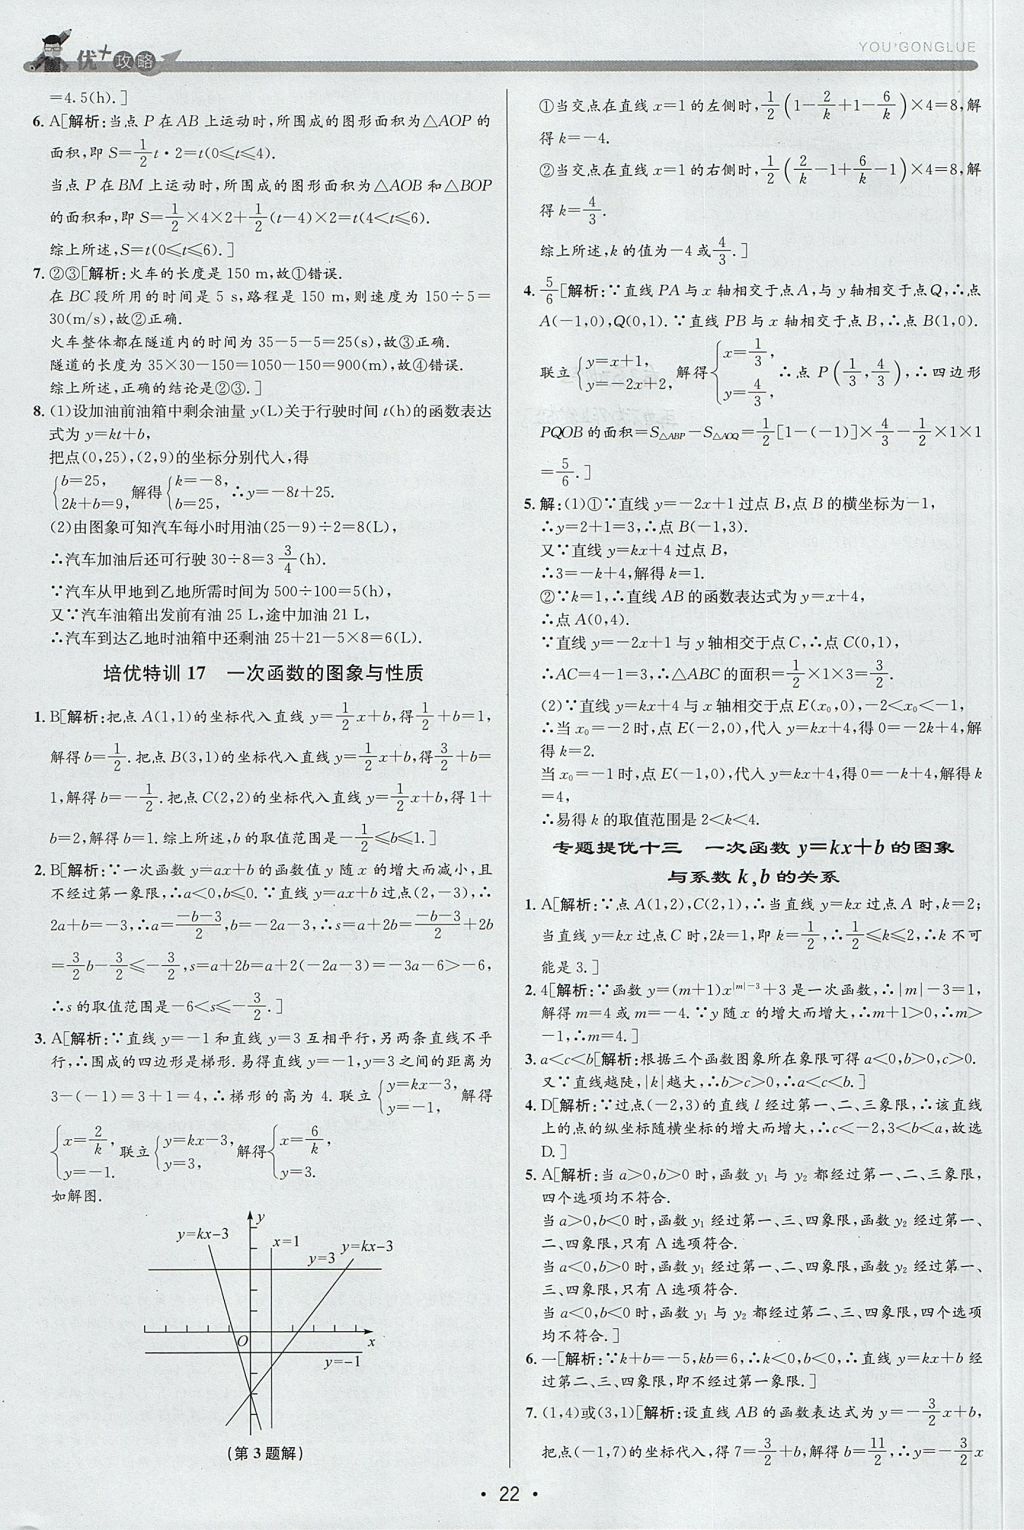 优+攻略
YOU'GONGLUE
=4.5(h).]
6. A[解析:当点 P 在 AB 上运动时,所围成的图形面积为△AOP 的
面积,即 S=1/2t·2=t(0≤t≤4).
当点 P 在 BM 上运动时,所围成的图形面积为△AOB 和△BOP
的面积和,即 S=1/2×4×2+1/2(t-4)×2=t(4<t≤6).
综上所述,S=t(0≤t≤6).]
7. ②③[解析:火车的长度是 150 m,故①错误.
在 BC 段所用的时间是 5 s,路程是 150 m,则速度为 150÷5=
30(m/s),故②正确.
火车整体都在隧道内的时间为 35-5-5=25(s),故③正确.
隧道的长度为 35×30-150=1050-150=900(m),故④错误.
综上所述,正确的结论是②③.]
8. (1)设加油前油箱中剩余油量 y(L)关于行驶时间 t(h)的函数表达
式为 y=kt+b,
把点(0,25),(2,9)的坐标分别代入,得
{b=25, 2k+b=9, 解得{k=-8, b=25, ∴y=-8t+25.
(2)由图象可知汽车每小时用油(25-9)÷2=8(L),
∴汽车加油后还可行驶 30÷8=3 3/4(h).
∵汽车从甲地到乙地所需时间为 500÷100=5(h),
又∵汽车油箱出发前有油 25 L,途中加油 21 L,
∴汽车到达乙地时油箱中还剩油 25+21-5×8=6(L).
培优特训 17 一次函数的图象与性质
1. B[解析:把点 A(1,1)的坐标代入直线 y=1/2x+b,得1/2+b=1,
解得 b=1/2.把点 B(3,1)的坐标代入直线 y=1/2x+b,得3/2+b=
1,解得 b=-1/2.把点 C(2,2)的坐标代入直线 y=1/2x+b,得 1+
b=2,解得 b=1.综上所述,b 的取值范围是-1/2≤b≤1.]
2. B[解析:∵一次函数 y=ax+b 的函数值 y 随 x 的增大而减小,且
不经过第一象限,∴a<0,b≤0.∵直线 y=ax+b 过点(2,-3),∴
2a+b=-3,∴a=(-b-3)/2,b=-2a-3,∴s=a+2b=(-b-3)/2+2b
=3/2b-3/2≤-3/2,s=a+2b=a+2(-2a-3)=-3a-6>-6,
∴s 的取值范围是-6<s≤-3/2.]
3. A[解析:∵直线 y=-1 和直线 y=3 互相平行,另两条直线不平
行,∴围成的四边形是梯形.易得直线 y=-1,y=3 之间的距离为
3-(-1)=3+1=4,∴梯形的高为 4.联立{y=kx-3, y=-1, 解得
{x=2/k, y=-1. 联立{y=kx-3, y=3, 解得{x=6/k, y=3.
如解图.
y
y=kx-3
x=1
y=3
y=kx-3
O
x
y=-1
(第 3 题解)
①当交点在直线 x=1 的左侧时,1/2(1-2/k+1-6/k)×4=8,解
得 k=-4.
②当交点在直线 x=1 的右侧时,1/2(2/k-1+6/k-1)×4=8,解
得 k=4/3.
综上所述,k 的值为-4 或4/3.]
4. 5/6[解析:∵直线 PA 与 x 轴相交于点 A,与 y 轴相交于点 Q,∴点
A(-1,0),Q(0,1).∵直线 PB 与 x 轴相交于点 B,∴点 B(1,0).
联立{y=x+1, y=-2x+2, 解得{x=1/3, y=4/3, ∴点 P(1/3,4/3),∴四边形
PQOB 的面积=S△ABP-S△AOQ=1/2[1-(-1)]×4/3-1/2×1×1
=5/6.]
5. 解:(1)①∵直线 y=-2x+1 过点 B,点 B 的横坐标为-1,
∴y=2+1=3,∴点 B(-1,3).
又∵直线 y=kx+4 过点 B,
∴3=-k+4,解得 k=1.
②∵k=1,∴直线 AB 的函数表达式为 y=x+4,
∴点 A(0,4).
∵直线 y=-2x+1 与 y 轴相交于点 C,∴点 C(0,1),
∴AC=4-1=3,∴△ABC 的面积=1/2×1×3=3/2.
(2)∵直线 y=kx+4 与 x 轴相交于点 E(x₀,0),-2<x₀<-1,
∴当 x₀=-2 时,点 E(-2,0),代入 y=kx+4,得 0=-2k+4,解
得 k=2.
当 x₀=-1 时,点 E(-1,0),代入 y=kx+4,得 0=-k+4,解得 k
=4,
∴易得 k 的取值范围是 2<k<4.
专题提优十三 一次函数 y=kx+b 的图象
与系数 k,b 的关系
1. A[解析:∵点 A(1,2),C(2,1),∴当直线 y=kx 过点 A 时,k=2;
当直线 y=kx 过点 C 时,2k=1,即 k=1/2,∴1/2≤k≤2,∴k 不可
能是 3.]
2. 4[解析:∵函数 y=(m+1)x^{|m|-3}+3 是一次函数,∴|m|-3=1,
解得 m=4 或 m=-4.∵y 随 x 的增大而增大,∴m+1>0,∴m>
-1,∴m=4.]
3. a<c<b[解析:根据三个函数图象所在象限可得 a<0,b>0,c>0.
又∵直线越陡,|k|越大,∴b>c>0,∴a<c<b.]
4. D[解析:∵过点(-2,3)的直线 l 经过第一、二、三象限,∴该直线
上的点的纵坐标随横坐标的增大而增大,∴c<-2,3<b<a,故选
D.]
5. A[解析:当 a>0,b>0 时,函数 y₁ 与 y₂ 都经过第一、二、三象限,
四个选项均不符合.
当 a>0,b<0 时,函数 y₁ 经过第一、三、四象限,函数 y₂ 经过第一、
二、四象限,只有 A 选项符合.
当 a<0,b>0 时,函数 y₁ 经过第一、二、四象限,函数 y₂ 经过第一、
三、四象限,只有 A 选项符合.
当 a<0,b<0 时,函数 y₁ 与 y₂ 都经过第二、三、四象限,四个选项
均不符合.]
6. 一[解析:∵k+b=-5,kb=6,∴k<0,b<0,∴直线 y=kx+b 经
过第二、三、四象限,即不经过第一象限.]
7. (1,4)或(3,1)[解析:设直线 AB 的函数表达式为 y=-3/2x+b,
把点(-1,7)的坐标代入,得 7=3/2+b,解得 b=11/2,∴y=-3/2x
· 22 ·